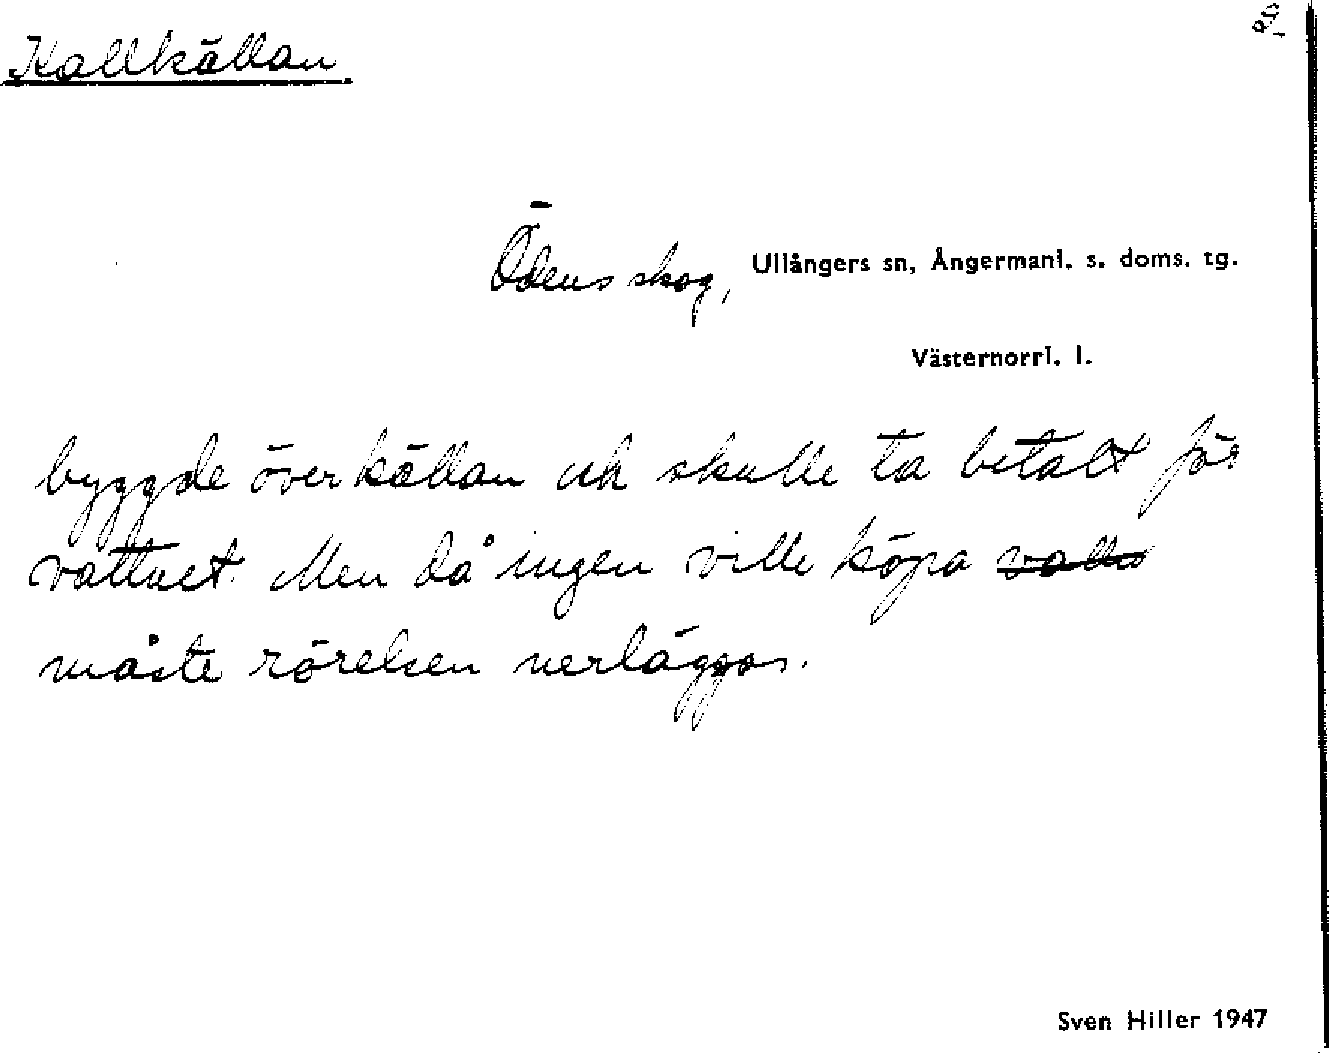 Kallkällan
Ödens skog, Ullångers sn, Ångermanl. s. doms. tg.
Västernorrl. l.
byggde över källan och skulle ta betalt för
vattnet. Men då ingen ville köpa
måste rörelsen nerläggas.
Sven Hiller 1947